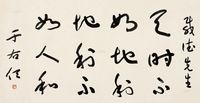 德先生
天時不
如地利
地利不
如人和
于右任